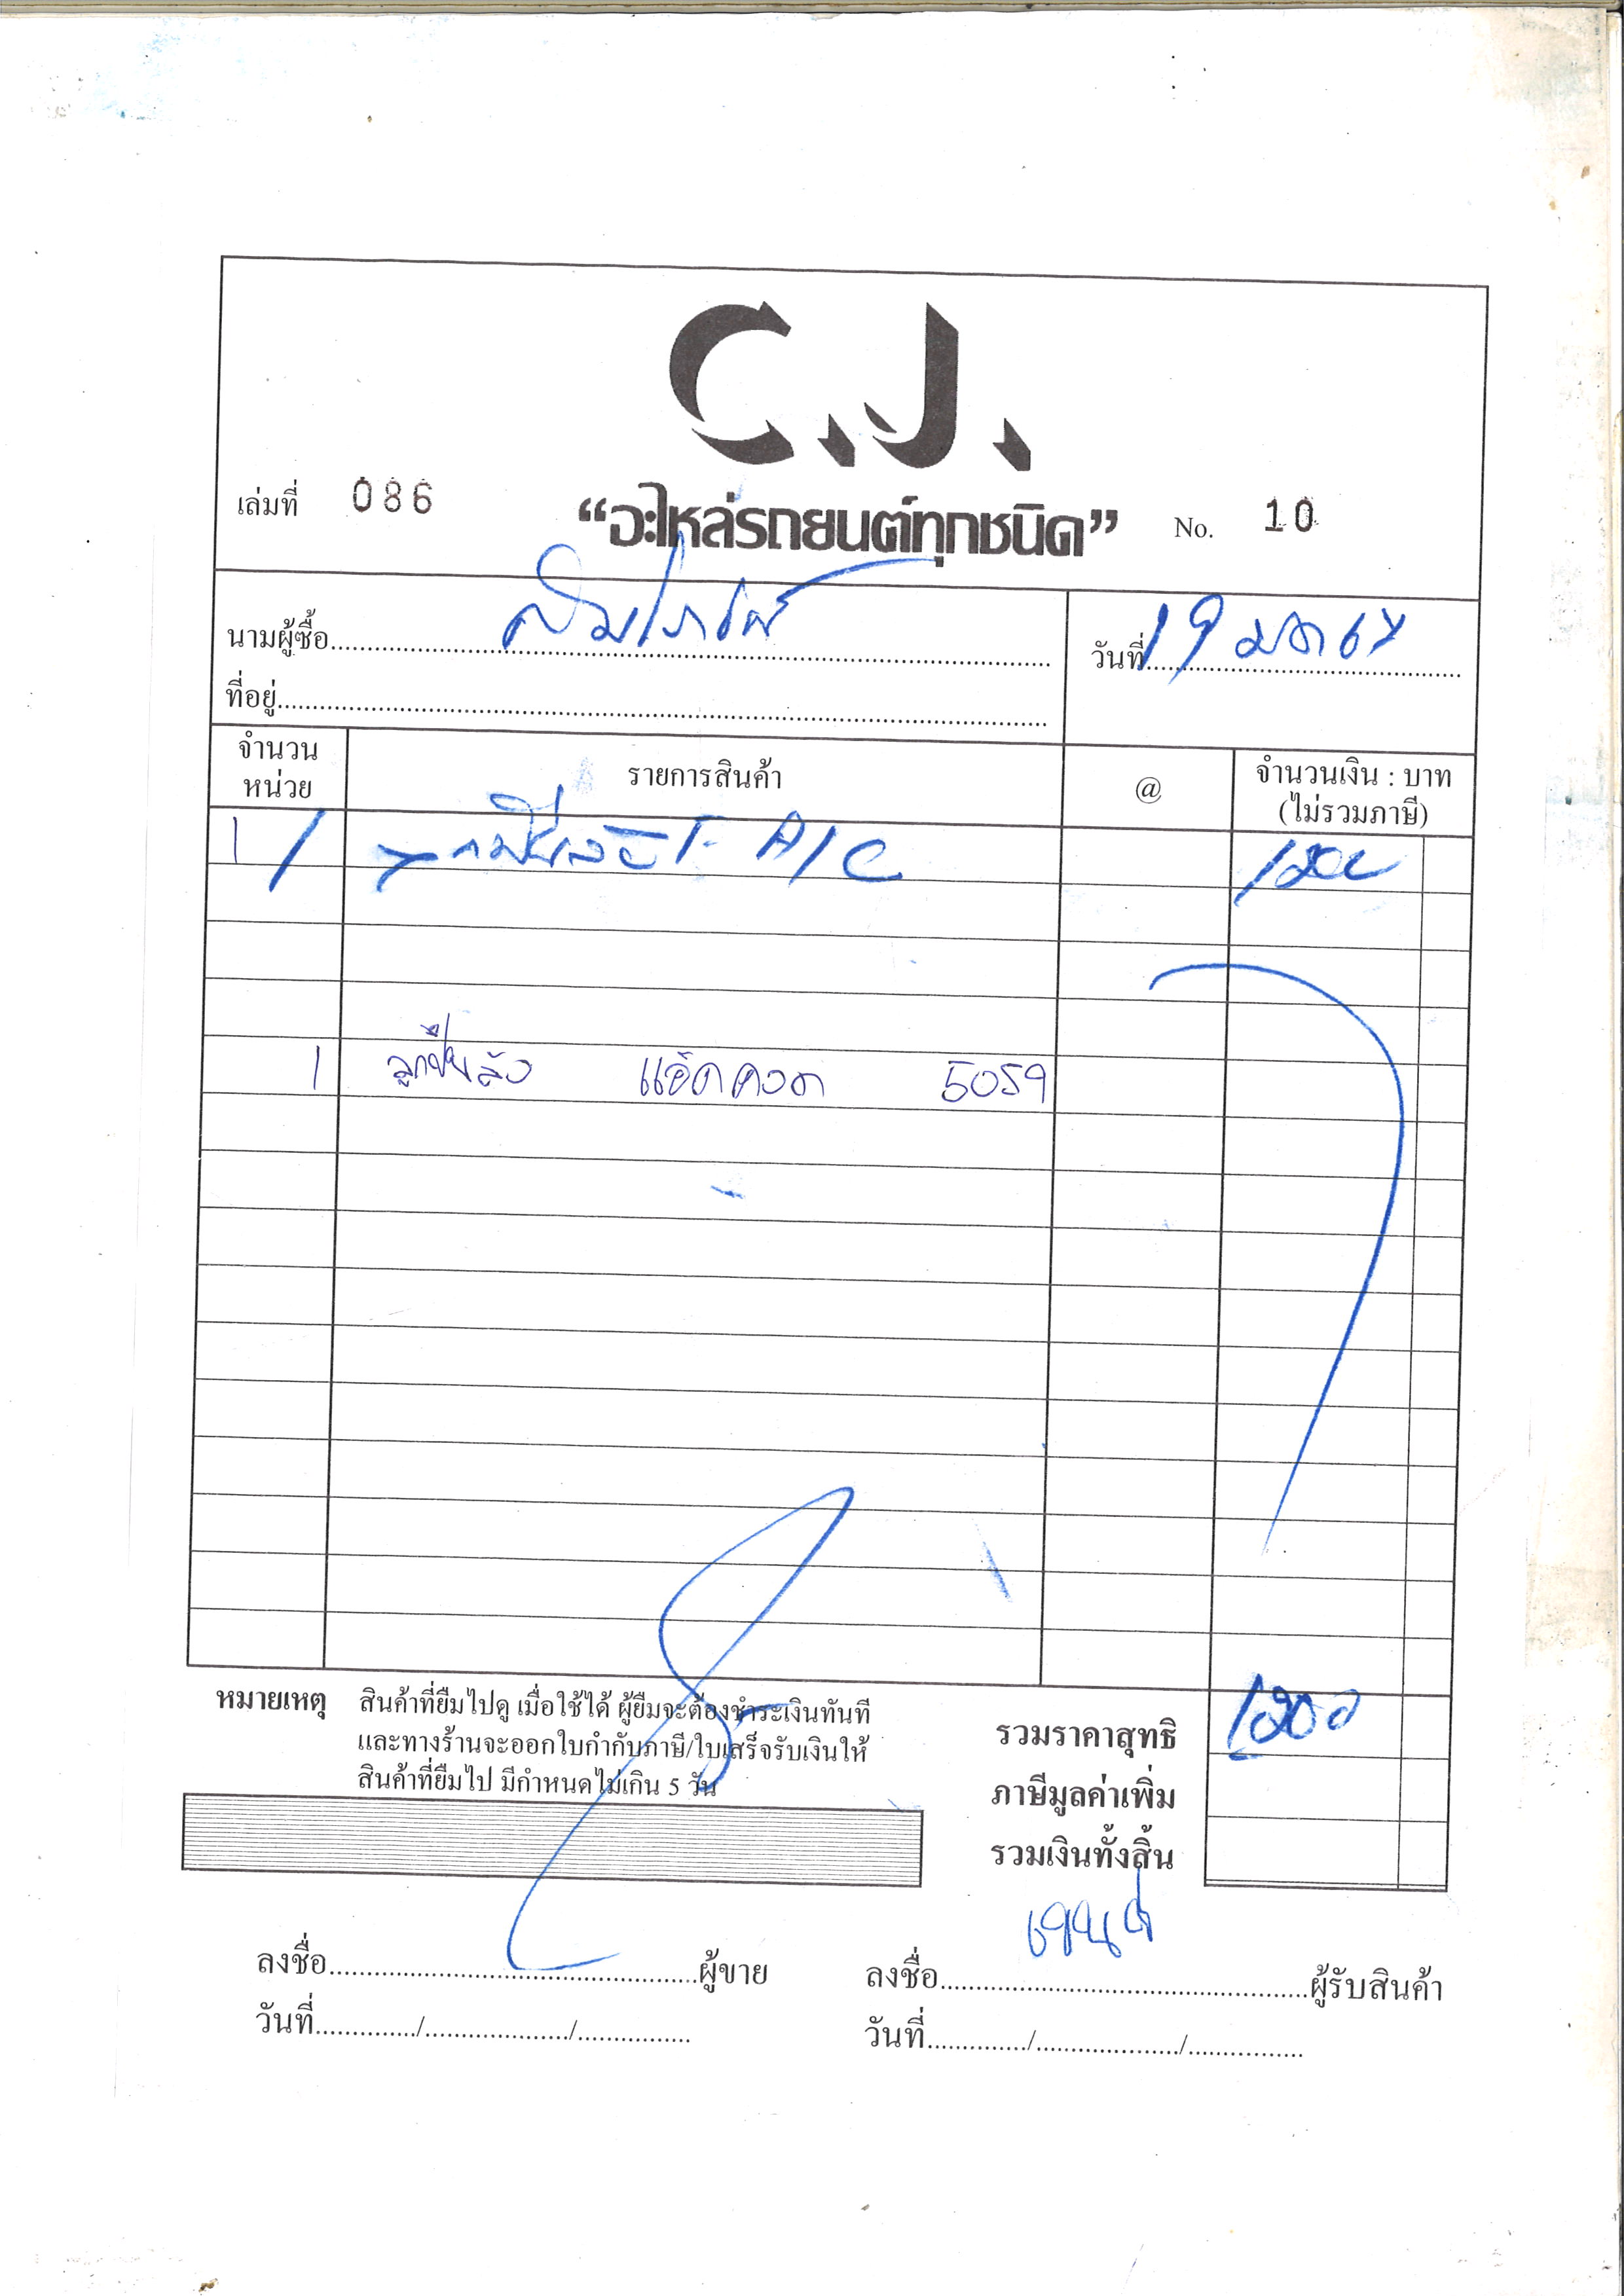 C.J.
เล่มที่ 086 “อะไหล่รถยนต์ทุกชนิด” No. 10
นามผู้ซื้อ วันที่ 19 มค 67
ที่อยู่
จำนวน หน่วย รายการสินค้า @ จำนวนเงิน : บาท (ไม่รวมภาษี)
1 A/C 1200
1 ลูกปืนล้อ แอ็คคอด 5059
หมายเหตุ สินค้าที่ยืมไปดู เมื่อใช้ได้ ผู้ยืมจะต้องชำระเงินทันที
และทางร้านจะออกใบกำกับภาษี/ใบเสร็จรับเงินให้
สินค้าที่ยืมไป มีกำหนดไม่เกิน 5 วัน
รวมราคาสุทธิ 1200
ภาษีมูลค่าเพิ่ม
รวมเงินทั้งสิ้น
ลงชื่อ ผู้ขาย ลงชื่อ ผู้รับสินค้า
วันที่ / / วันที่ / /